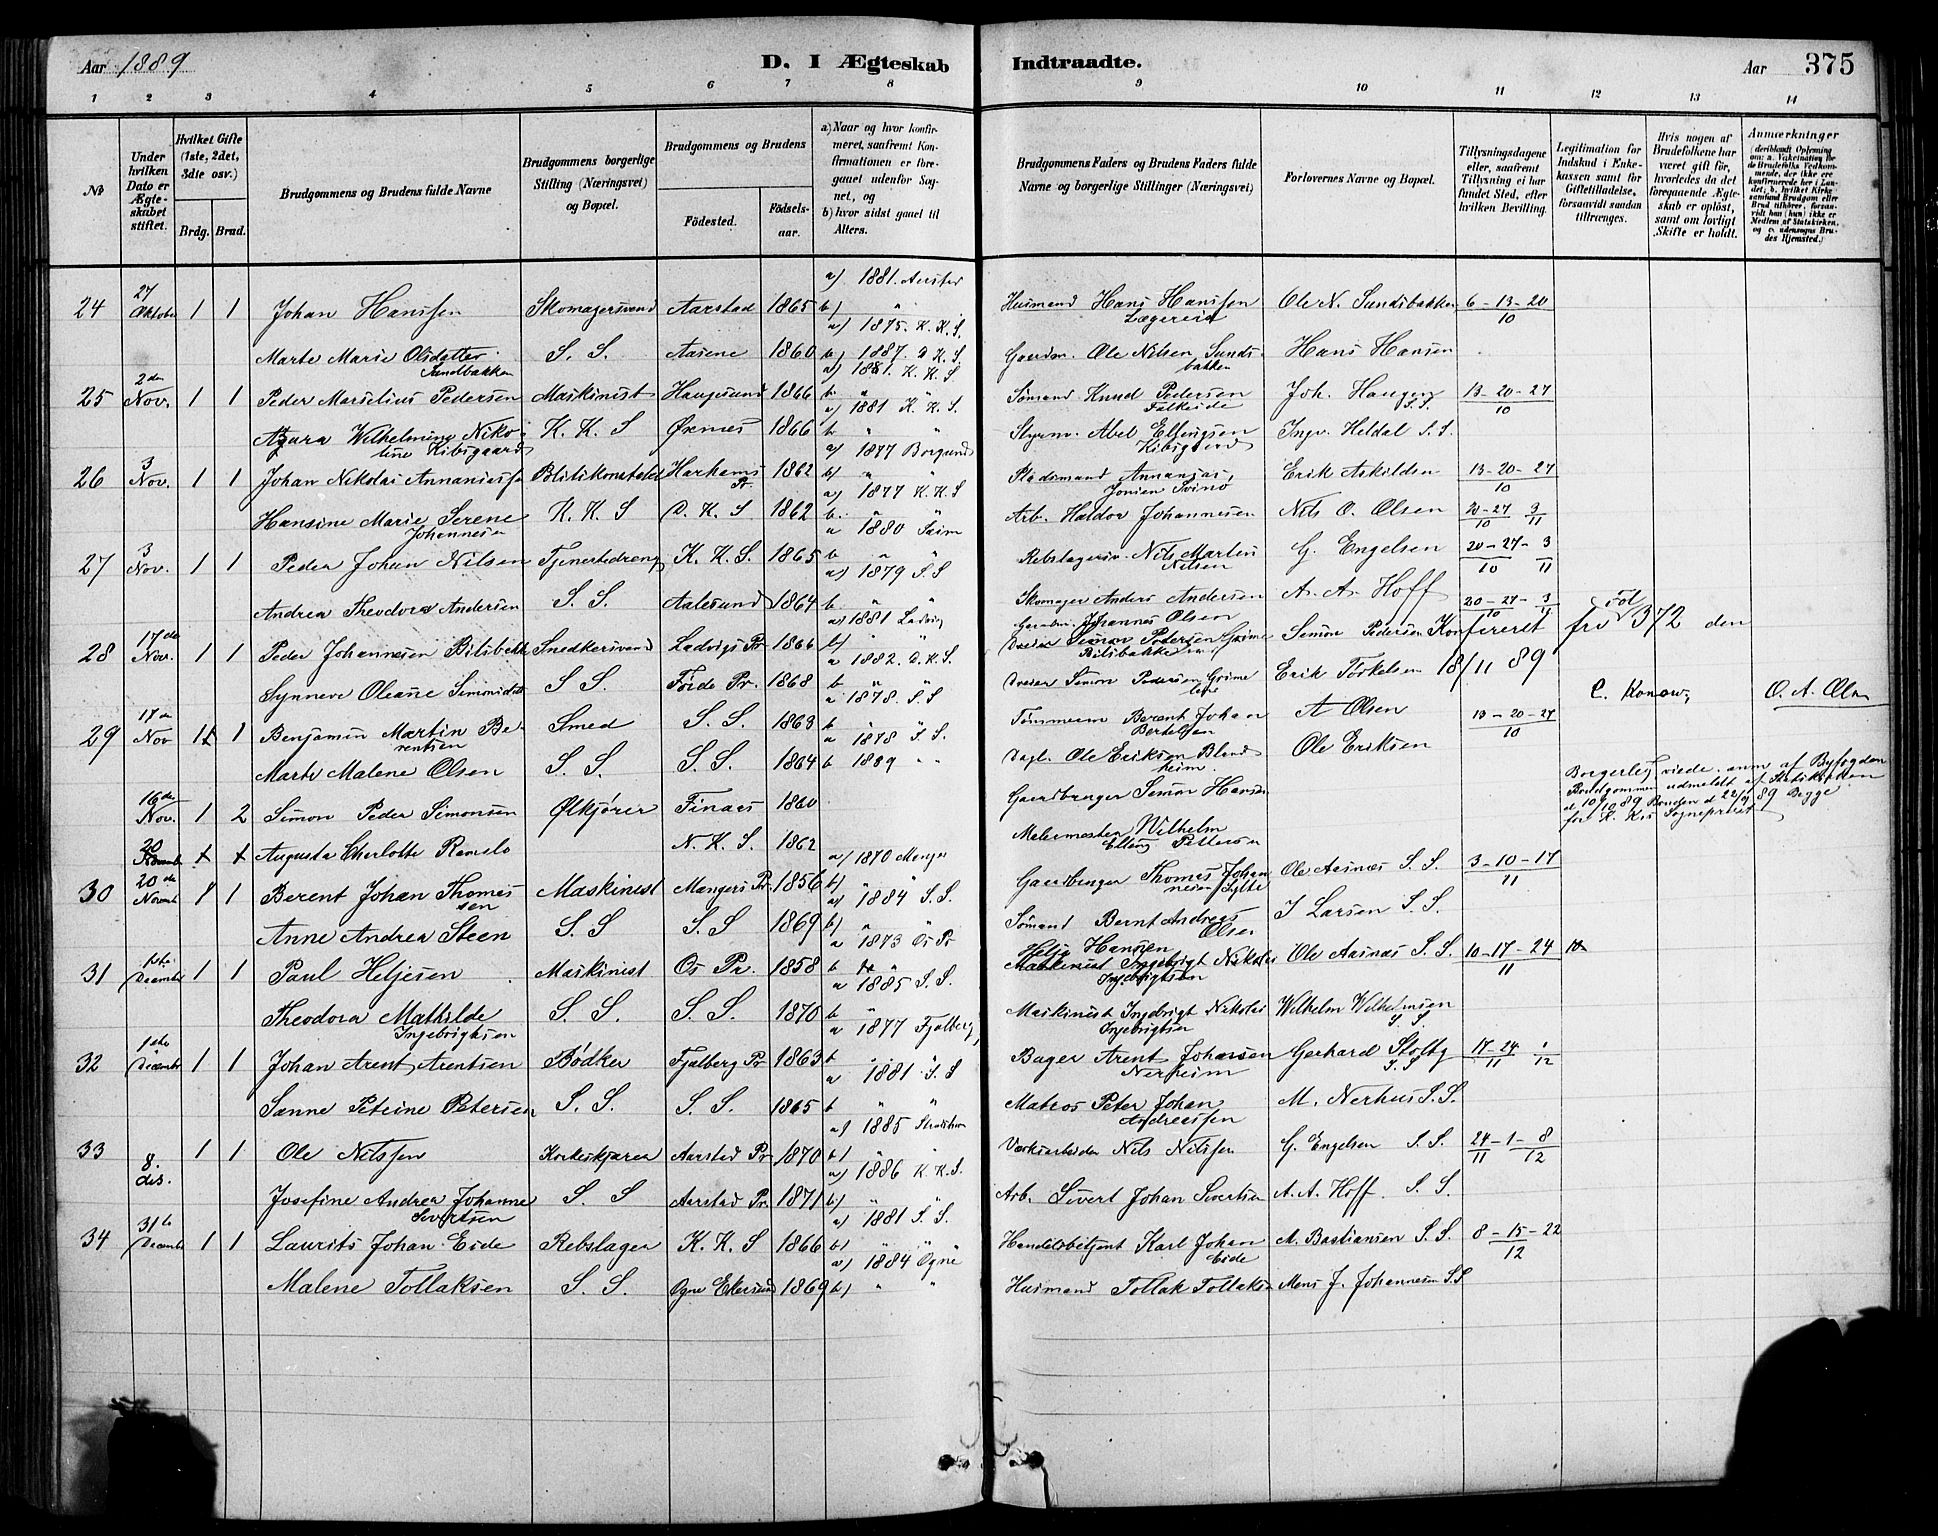 Aar 1889
D. I Ægteskab Indtraadte.
Aar 375
1 2 3 4 5 6 7 8 9 10 11 12 13 14
No
Under hvilken Dato er Ægteskabet stiftet.
Hvilket Gifte (1ste, 2det, 3die osv.)
Brdg. Brud.
Brudgommens og Brudens fulde Navne
Brudgommens borgerlige Stilling (Næringsvei) og Bopæl.
Brudgommens og Brudens
Födested.
Födselsaar.
a) Naar og hvor konfirmeret, saafremt Konfirmationen er foregaaet udenfor Sognet, og
b) hvor sidst gaaet til Alters.
Brudgommens Faders og Brudens Faders fulde Navne og borgerlige Stillinger (Næringsvei)
Forlovernes Navne og Bopæl.
Tillysningsdagene eller, saafremt Tillysning ei har fundet Sted, efter hvilken Bevilling.
Legitimation for Indskud i Enkekassen samt for Giftetilladelse, forsaavidt saadan tiltrænges.
Hvis nogen af Brudefolkene har været gift før, hvorledes da det foregaaende Ægteskab er opløst, samt om lovligt Skifte er holdt.
Anmærkninger
24 27 Oktobr 1 1 Johan Hanssen Skomagersvend Aarstad 1865 a) 1881 Aarstad b) " Husmand Hans Hanssen Lægereid Ole N. Sundsbakken 6-13-20/10
Marte Marie Olsdatter Sundbakken S. S. Aasene 1860 a) 1875. K. K. S. b) 1887. D. K. S. Gaardm. Ole Nilsen Sundsbakken Hans Hansen
25 2den Nov. 1 1 Peder Marselius Pedersen Maskinist Haugesund 1866 a) 1881. K. K. S. b " Sømand Knud Pedersen Falkeide Joh. Haugen S. S. 13-20-27/10
Wilhelmine Nikoline Kibsgaard K. K. S Øxnes 1866 a) 1881 K. K. S. b " " Styrm. Abel Ellingsen Kibsgaard Ingv. Heldal S. S.
26 3 Nov. 1 1 Johan Nikolai Annaniassen Politikonstabel Harhams Pr. 1862 a) 1877 Borgund b) " " Pladsmand Annanias Jonsen Svinø Erik Askilden 13-20-27/10
Hansine Marie Serene Johannesen K. K. S D. K. S 1862 a) 1877 K. K. S b. " " Arb. Haldor Johannesen Nils O. Olsen 20-27/10 3/11
27 3 Nov. 1 1 Peder Johan Nilsen Tjenestedreng K. K. S. 1865 a 1880 b " " Rebslagersv. Nils Martin Nilsen G. Engelsen 20-27/10-3/11
Andrea Theodora Andersen S. S. Aalesund 1864 a) 1879 S. S b. " " Skomager Anders Andersen A. A. Hoff 20-27/10-3/11
28 17de Nov. 1 1 Peder Johannesen Snedkersvend Ladvigs Pr 1866 a) 1881 Ladvig b) " " Gaardm. Johannes Olsen Simon Pedersen Konfereret fra Fol 372 den
Synneve Oleane Simonsdtr S. S Førde Pr. 1868 a 1882. D. K. S. b " " Dreier Simon Pedersen Erik Torkelsen 18/11 89
C. Konow, O. A. Olsen
29 17de Nov 1 1 Benjamin Martin Berentsen Smed S. S. 1863 a 1878. S. S b " " Tømmerm Berent Johan Bertelsen A Olsen 13-20-27/10
Marte Malene Olsen S. S. S. S. 1864 a 1878 S. S. b 1889 " " Dagl. Ole Eriksen Blindheim. Ole Eriksen
16de Nov. 1 2 Simon Peder Simonsen Ølkjører Finaas 1860 Gaardbruger Simon Hansen
Borgerlig viede. anm af Byfogden Brudgommen udmeldt af Statskirken d 10/10 89 Bruden d 22/9 89 Bygge for K. Kis Sogneprest
Augusta Charlotte Ramslo N. K. S. 1862 Malermester Wilhelm Pettersen
30 20de Novemb 1 1 Berent Johan Thomassen Maskinist Mangers Pr 1856 a) 1870 Manger b) " Gaardbruger Thomas Johannesen Sylte Ole Aasnæs S. S. 3-10-17/11
Anne Andrea Steen S. S S. S 1869 a) 1884 S. S. b) " " Sømand Bernt Andreas Olsen J Larsen S. S.
31 1ste Decemb 1 1 Paul Heljesen Maskinist Os Pr. 1858 a 1873 Os Pr b " Helje Hansen Ole Aasnæs S. S. 10-17-24/11
Theodora Mathilde Ingebrigtsen S. S. S. S. 1870 a 1885 S. S. b " Maskinist Ingebrigt Nikolai Ingebrigtsen Wilhelm Wilhelmsen S. S.
32 1ste Decemb 1 1 Johan Arent Arentsen Bødker Fjælberg Pr 1863 a 1877 Fjælberg b " " Bager Arent Johansen Nerheim Gerhard Stolty S. S 17-24/11 1/12
Sanne Petrine Petersen S. S. S. S. 1865 a 1881 S. S b " " Matros Peter Johan Andreassen M. Nerhus S. S.
33 8. des. 1 1 Ole Nilssen Korkeskjærer Aarstad Pr 1870 a) 1885 b) " " Værksarbeider Nils Nilssen G. Engelsen S. S. 24-1-8/11 12
Josefine Andrea Johanne Sivertsen S. S Aarstad Pr. 1871 a) 1886 K. K. S. b) " " Arb. Sivert Johan Sivertsen A. A. Hoff. S. S.
34 31te Decemb 1 1 Laurits Johan Eide Rebslager K. K. S 1866 a) 1881 S. S. b) " " Handelsbetjent Karl Johan Eide A. Bastiansen S. S. 8-15-22/12
Malene Tollaksen S. S. Ogne Ekersund 1869 a) 1884 Ogne b) " " Husmand Tollak Tollaksen Mons J. Johannesen S. S